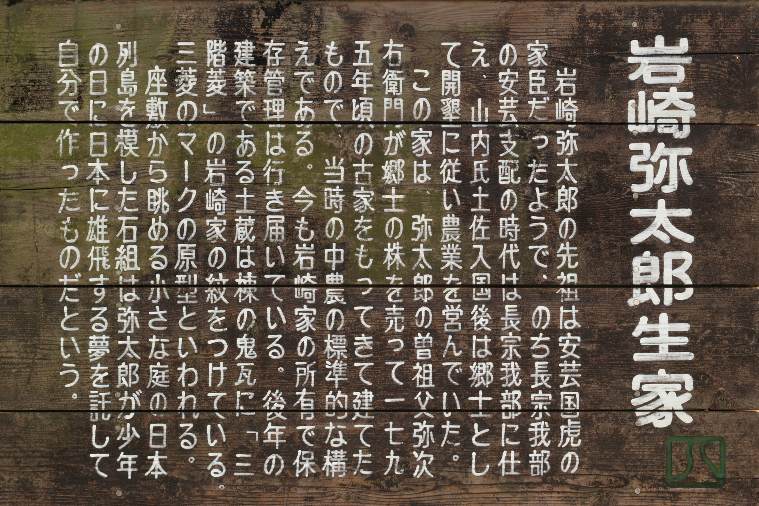 岩崎弥太郎生家
岩崎弥太郎の先祖は安芸国虎の
家臣だったようで、のち長宗我部
の安芸支配の時代は長宗我部に仕
え、山内氏土佐入国後は郷士とし
て開墾に従い農業を営んでいた。
この家は、弥太郎の曽祖父弥次
右衛門が郷士の株を売って一七九
五年頃の古家をもってきて建てた
もので、当時の中農の標準的な構
えである。今も岩崎家の所有で保
存管理は行き届いている。後年の
建築である土蔵は棟の鬼瓦に「三
階菱」の岩崎家の紋をつけている。
三菱のマークの原型といわれる。
座敷から眺める小さな庭の日本
列島を模した石組は弥太郎が少年
の日に日本に雄飛する夢を託して
自分で作ったものだという。